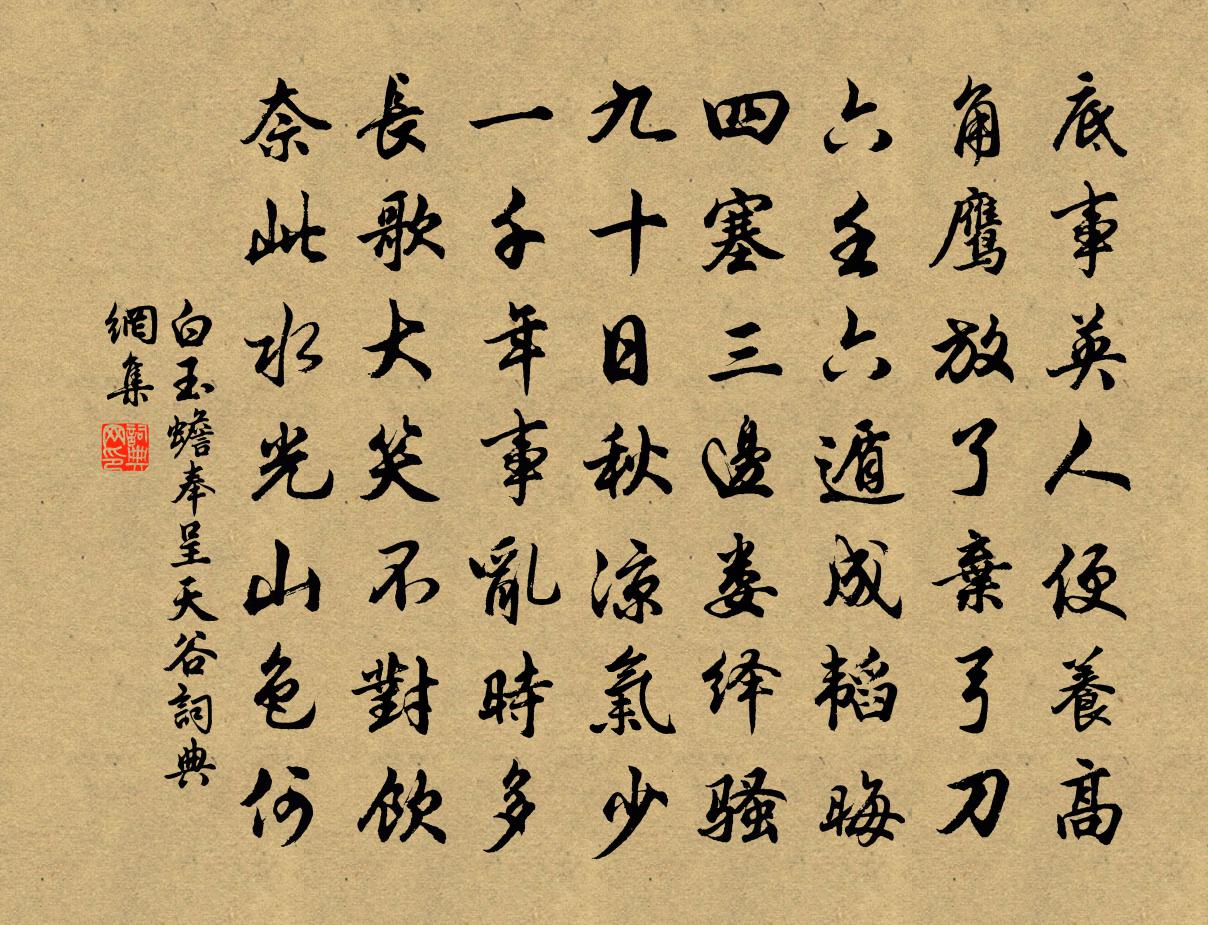 底事英人便養高
角鹰放了棄弓刀
六壬六遁成韬晦
四塞三邊娄绎骚
九十日秋涼氣少
一千年事亂時多
長歌大笑不對飲
奈此水光山色何
白玉蟾奉呈天谷詞典
網集
詞典
网印